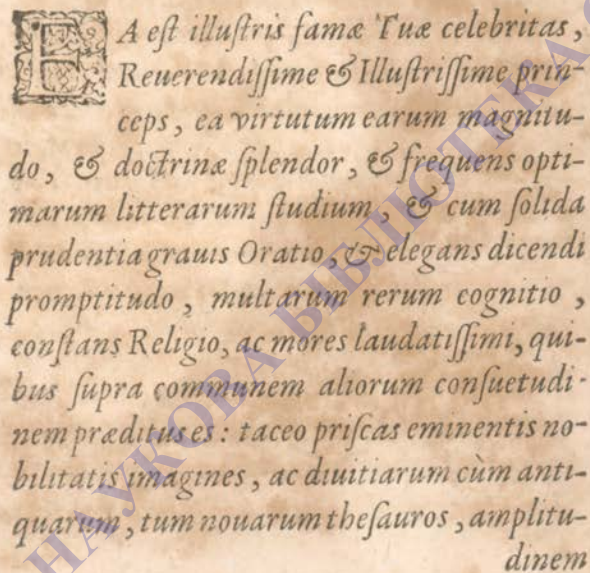 EA eſt illuſtris famæ Tuæ celebritas,
Reuerendiſſime & Illuſtriſſime prin-
ceps, ea virtutum earum magnitu-
do, & doctrinæ ſplendor, & frequens opti-
marum litterarum ſtudium, & cum ſolida
prudentia grauis Oratio, & elegans dicendi
promptitudo, multarum rerum cognitio,
conſtans Religio, ac mores laudatiſſimi, qui-
bus ſupra communem aliorum conſuetudi-
nem præditus es: taceo priſcas eminentis no-
bilitatis imagines, ac diuitiarum cùm anti-
quarum, tum nouarum theſauros, amplitu-
dinem
НАУКОВА БІБЛІОТЕКА